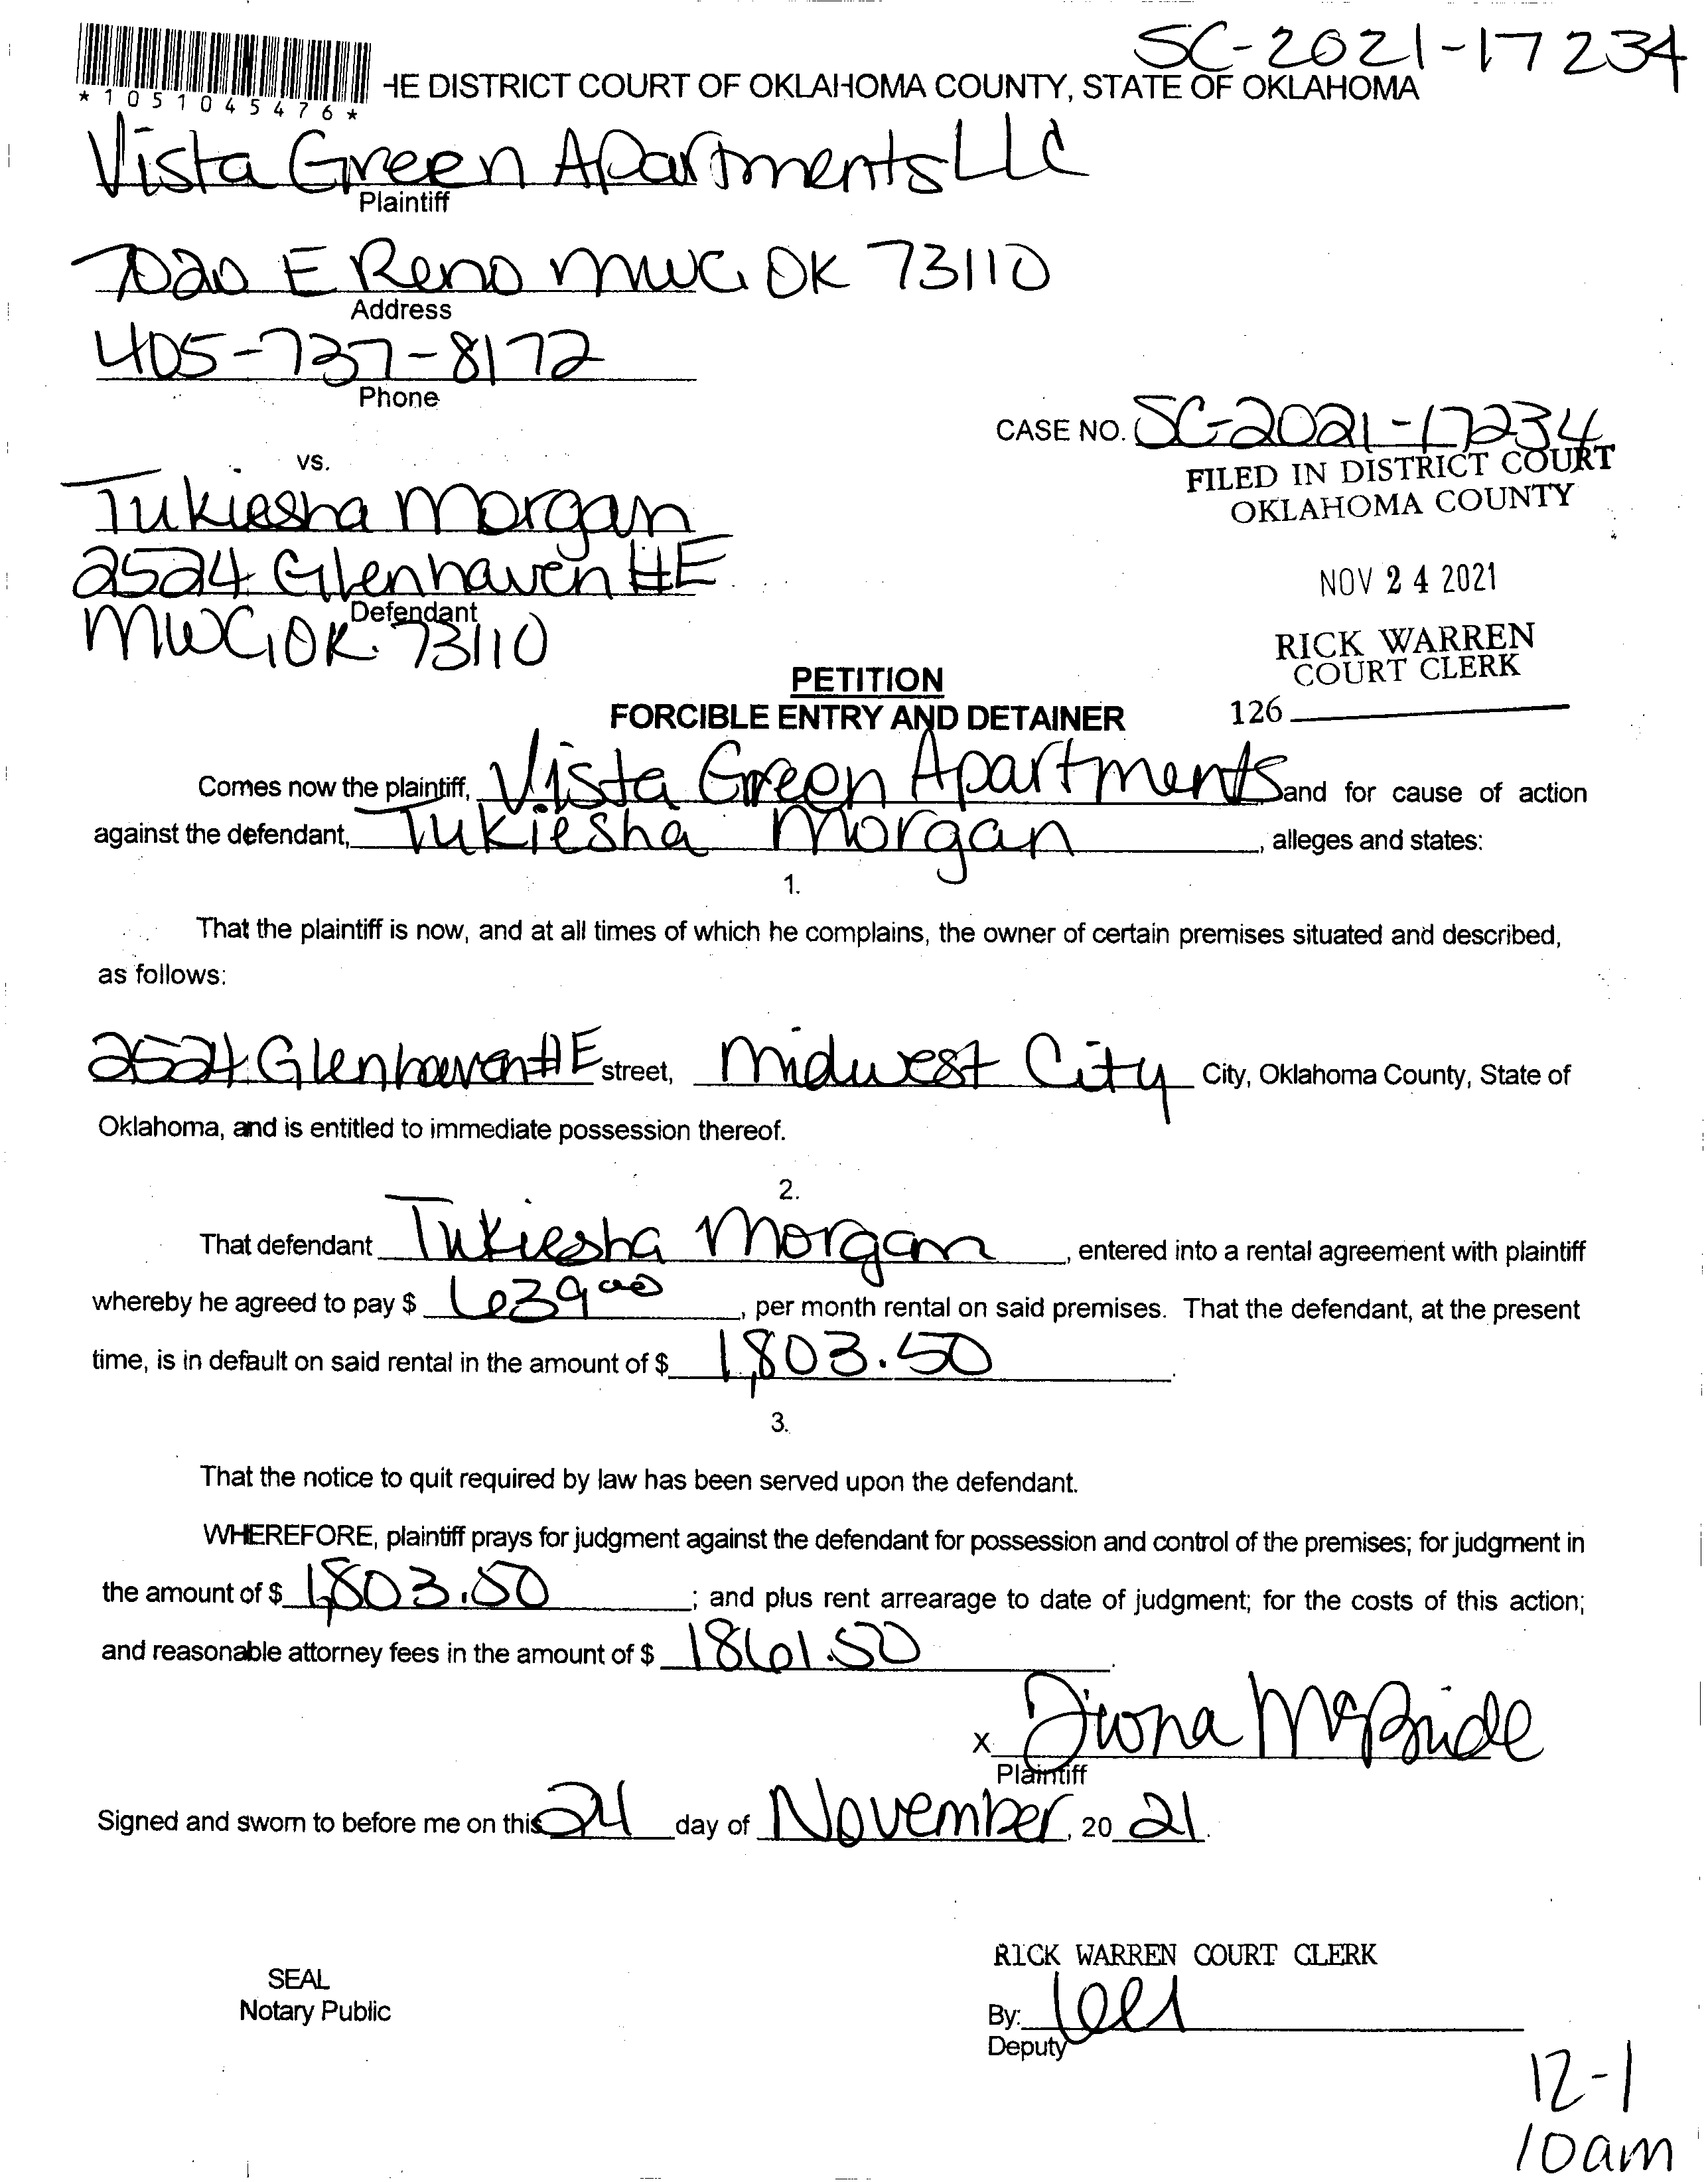 SC-2021-17234
*1051045476*
HE DISTRICT COURT OF OKLAHOMA COUNTY, STATE OF OKLAHOMA
Vista Green Apartments LLC
Plaintiff
7020 E Reno MWC, OK 73110
Address
405-737-8172
Phone
CASE NO. SC-2021-17234
FILED IN DISTRICT COURT
OKLAHOMA COUNTY
vs.
Tukiesha Morgan
2524 Glenhaven #E
Defendant
MWC, OK. 73110
NOV 24 2021
RICK WARREN
COURT CLERK
126
PETITION
FORCIBLE ENTRY AND DETAINER
Comes now the plaintiff, Vista Green Apartments and for cause of action
against the defendant, Tukiesha Morgan, alleges and states:
1.
That the plaintiff is now, and at all times of which he complains, the owner of certain premises situated and described,
as follows:
2524 Glenhaven #E street, Midwest City City, Oklahoma County, State of
Oklahoma, and is entitled to immediate possession thereof.
2.
That defendant Tukiesha Morgan, entered into a rental agreement with plaintiff
whereby he agreed to pay $ 639 00, per month rental on said premises. That the defendant, at the present
time, is in default on said rental in the amount of $ 1,803.50.
3.
That the notice to quit required by law has been served upon the defendant.
WHEREFORE, plaintiff prays for judgment against the defendant for possession and control of the premises; for judgment in
the amount of $ 1,803.50; and plus rent arrearage to date of judgment; for the costs of this action;
and reasonable attorney fees in the amount of $ 1861.50.
X McBride
Plaintiff
Signed and sworn to before me on this 24 day of November, 20 21.
SEAL
Notary Public
RICK WARREN COURT CLERK
By:
Deputy
12-1
10am